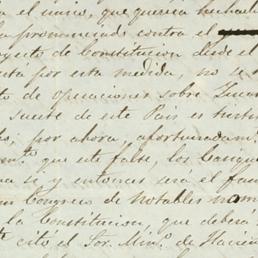 a el unico, que queria
a pronunciado contra el
oyecto de Constitucion desde el
sta por esta medida, no se
to de operaciones sobre
suerte de este Pais es
por ahora, afortunadam
que este falte, los
a si y entonces será el
Congreso de Notables
la Constitucion, que deberá
cito el Sor. Minº. de Hacien